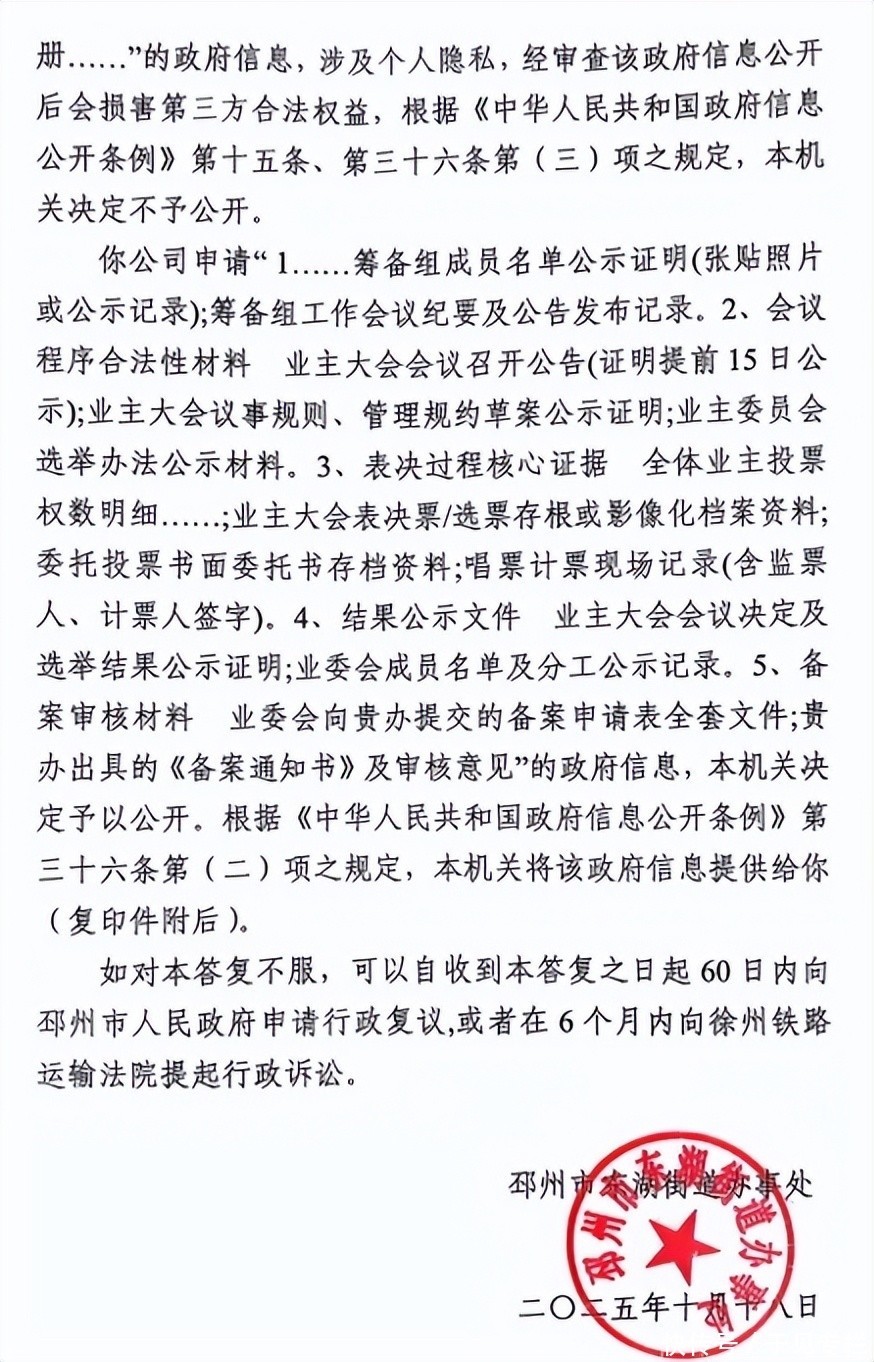 册……”的政府信息，涉及个人隐私，经审查该政府信息公开
后会损害第三方合法权益，根据《中华人民共和国政府信息
公开条例》第十五条、第三十六条第（三）项之规定，本机
关决定不予公开。
你公司申请“1……筹备组成员名单公示证明(张贴照片
或公示记录);筹备组工作会议纪要及公告发布记录。2、会议
程序合法性材料　业主大会会议召开公告(证明提前15日公
示);业主大会议事规则、管理规约草案公示证明;业主委员会
选举办法公示材料。3、表决过程核心证据　全体业主投票
权数明细……;业主大会表决票/选票存根或影像化档案资料;
委托投票书面委托书存档资料;唱票计票现场记录(含监票
人、计票人签字)。4、结果公示文件　业主大会会议决定及
选举结果公示证明;业委会成员名单及分工公示记录。5、备
案审核材料　业委会向贵办提交的备案申请表全套文件;贵
办出具的《备案通知书》及审核意见”的政府信息，本机关决
定予以公开。根据《中华人民共和国政府信息公开条例》第
三十六条第（二）项之规定，本机关将该政府信息提供给你
（复印件附后）。
如对本答复不服，可以自收到本答复之日起60日内向
邳州市人民政府申请行政复议,或者在6个月内向徐州铁路
运输法院提起行政诉讼。
邳州市东湖街道办事处
邳州市东湖街道办事处
二〇二五年十月十八日